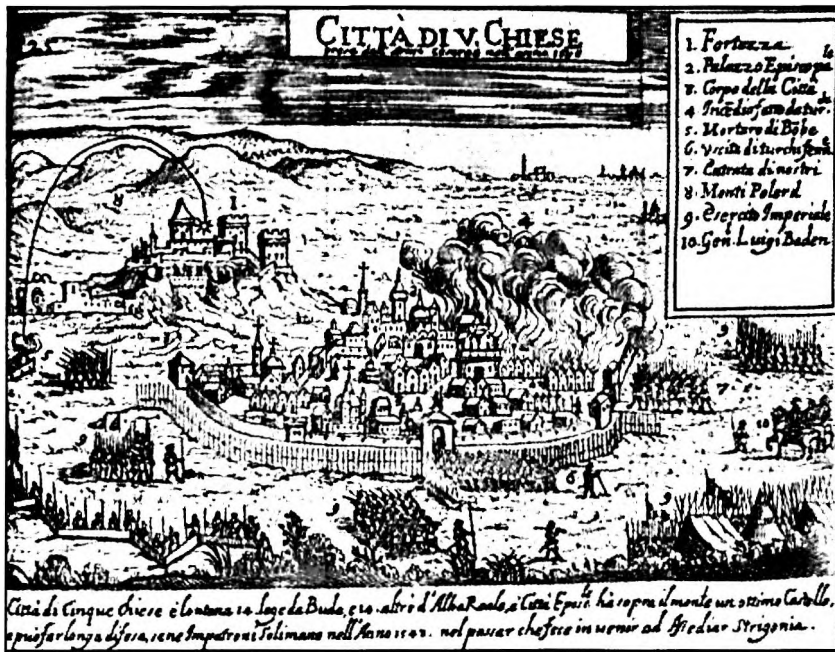 25
CITTÀ DI V. CHIESE
nell'anno
1. Fortezza
2. Palazzo Episcopa
le
3. Corpo della Città
4. Incēdio fatto da tur
chi
5. Mortaro di Bōbe
6. Uscita di turchi
7. Entrata di nostri
8. Monti Polard
9. Esercito Imperiale
10. Gen. Luigi Baden
Città di Cinque Chiese è lontana 14 lege da Buda, e 10. altre d'Alba Reale, è Città Episc.le hà sopra il monte un ottimo Castello,
e può far longa difesa, se ne Impatronì Solimano nell'Anno 1543. nel passar che fece in venir ad Assediar Strigonia.